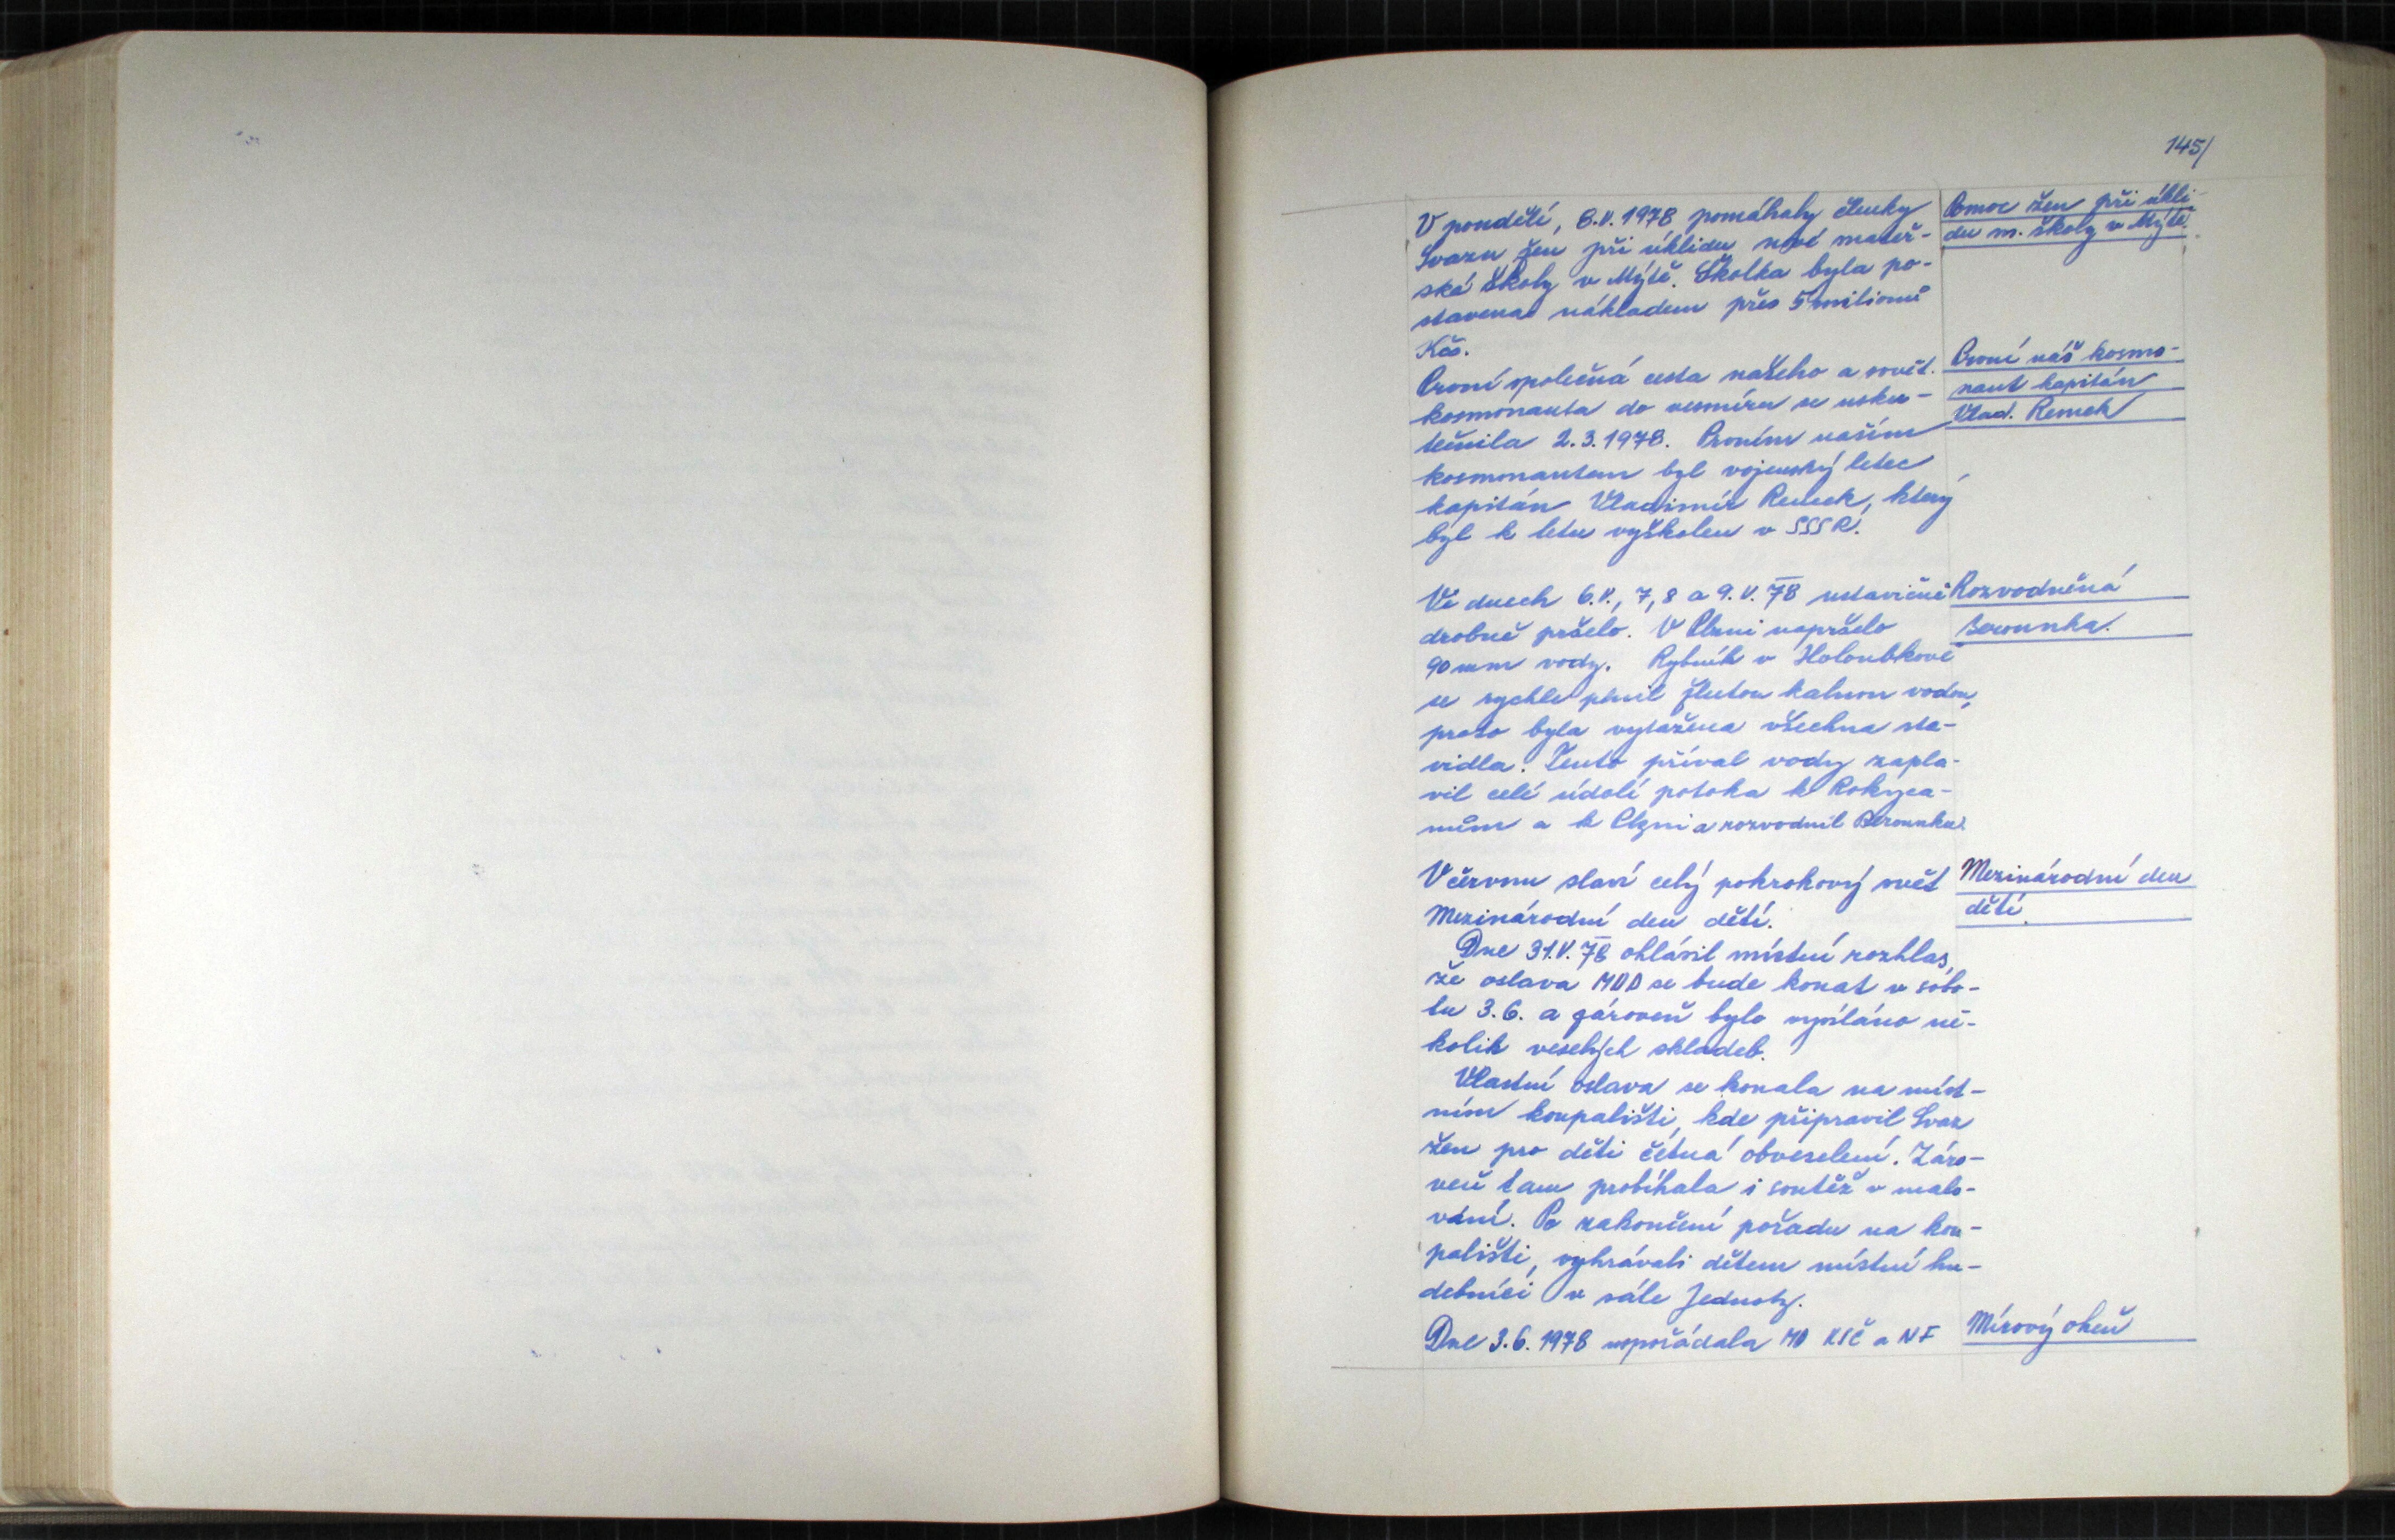 145/
V pondělí, 8.V.1978 pomáhaly členky
Svazu žen při úklidu nové mateř-
ské školy v Mýtě. Školka byla po-
stavena nákladem přes 5 milionů
Kčs.
Pomoc žen při úkli-
du m. školy v Mýtě.
První společná cesta našeho a sovět.
kosmonauta do vesmíru se usku-
tečnila 2.3.1978. Prvním naším
kosmonautem byl vojenský letec
kapitán Vladimír Remek, který
byl k letu vyškolen v SSSR.
První náš kosmo-
naut kapitán
Vlad. Remek
Ve dnech 6.V., 7, 8 a 9.V.78 ustavičně
drobně pršelo. V Plzni napršelo
90 mm vody. Rybník v Holoubkově
se rychle plnil žlutou kalnou vodou,
proto byla vytažena všechna sta-
vidla. Tento příval vody zapla-
vil celé údolí potoka k Rokyca-
nům a k Plzni a rozvodnil Berounku.
Rozvodněná
Berounka.
V červnu slaví celý pokrokový svět
Mezinárodní den dětí.
Mezinárodní den
dětí.
Dne 31.V.78 ohlásil místní rozhlas,
že oslava MDD se bude konat v sobo-
tu 3.6. a zároveň bylo vysíláno ně-
kolik veselých skladeb.
Vlastní oslava se konala na míst-
ním koupališti, kde připravil Svaz
žen pro děti četná obveselení. Záro-
veň tam probíhala i soutěž v malo-
vání. Po zakončení pořadu na kou-
pališti, vyhrávali dětem místní hu-
debníci v sále Jednoty.
Dne 3.6.1978 uspořádala MO KSČ a NF
Mírový oheň